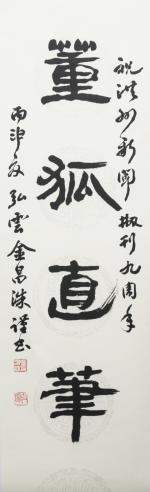 祝洪州新聞刊九周年
董狐直筆
丙申夏弘雲金昌洙謹書